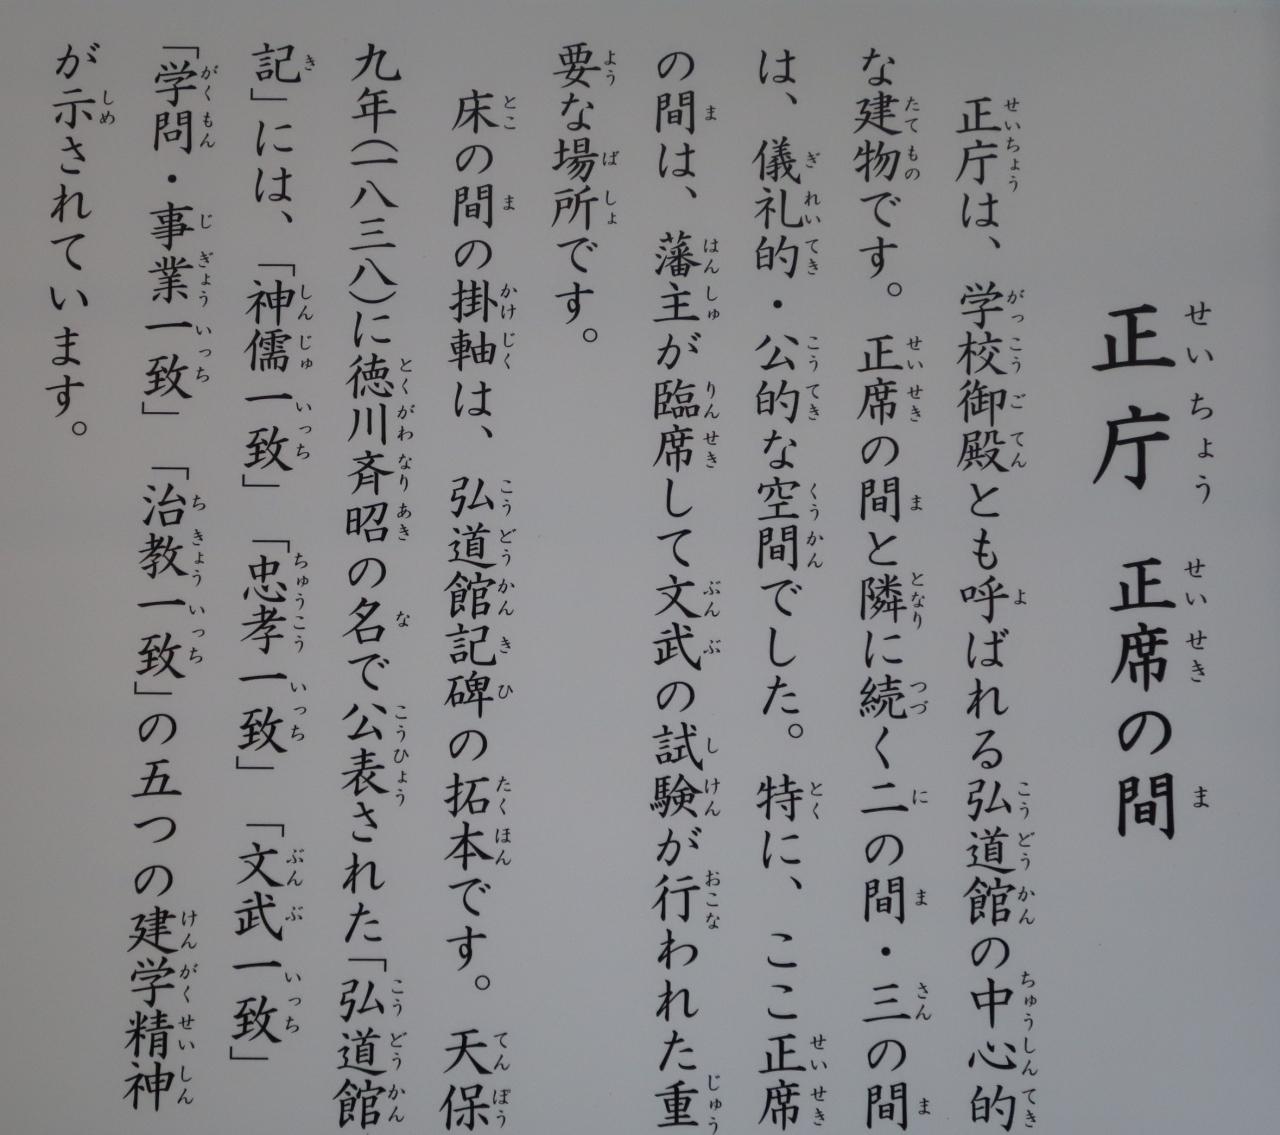 正庁 正席の間
正庁は、学校御殿とも呼ばれる弘道館の中心的
な建物です。正席の間と隣に続く二の間・三の間
は、儀礼的・公的な空間でした。特に、ここ正席
の間は、藩主が臨席して文武の試験が行われた重
要な場所です。
床の間の掛軸は、弘道館記碑の拓本です。天保
九年(一八三八)に徳川斉昭の名で公表された「弘道館
記」には、「神儒一致」「忠孝一致」「文武一致」
「学問・事業一致」「治教一致」の五つの建学精神
が示されています。